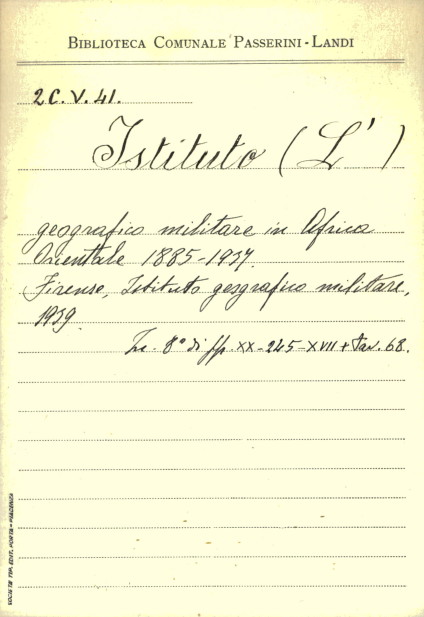 BIBLIOTECA COMUNALE PASSERINI-LANDI
2C.V.41.
Istituto (L')
geografico militare in Africa
Orientale 1885-1937.
Firenze, Istituto geografico militare,
1939.
In 8° di pp. XX-245-XVII + tav. 68.